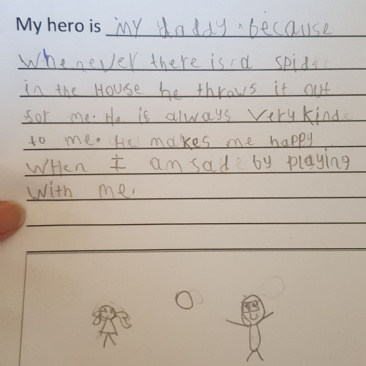 My hero is my daddy because
Whenever there is a spid
in the House he throws it out
for me. He is always very kind
to me. He makes me happy
WHen I am sad by playing
With me.